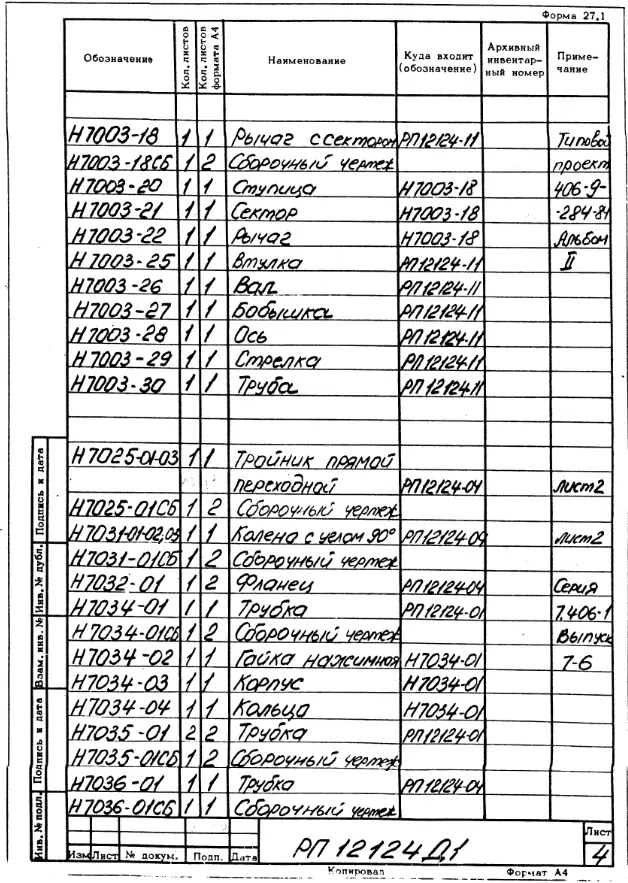 Форма 27.1
Обозначение Кол. листов Кол. листов формата А4 Наименование Куда входит (обозначение) Архивный инвентарный номер Примечание
Н7003-18 1 1 Рычаг с сектором РП12124-11 Типовой
Н7003-18СБ 1 2 Сборочный чертеж проект
Н7003-20 1 1 Ступица Н7003-18 406-9-
Н7003-21 1 1 Сектор Н7003-18 -284-84
Н7003-22 1 1 Рычаг Н7003-18 Альбом
Н7003-25 1 1 Втулка РП12124-11 II
Н7003-26 1 1 Вал РП12124-11
Н7003-27 1 1 Бобышка РП12124-11
Н7003-28 1 1 Ось РП12124-11
Н7003-29 1 1 Стрелка РП12124-11
Н7003-30 1 1 Труба РП12124-11
Н7025-01-03 1 1 Тройник прямой
переходной РП12124-04 Лист2
Н7025-01СБ 1 2 Сборочный чертеж
Н7031-01-02,03 1 1 Колена с углом 90° РП12124-04 Лист2
Н7031-01СБ 1 2 Сборочный чертеж
Н7032-01 1 2 Фланец РП12124-04 Серия
Н7034-01 1 1 Трубка РП12124-01 7.406-1
Н7034-01СБ 1 2 Сборочный чертеж Выпуск
Н7034-02 1 1 Гайка нажимная Н7034-01 7-6
Н7034-03 1 1 Корпус Н7034-01
Н7034-04 1 1 Кольцо Н7034-01
Н7035-01 2 2 Трубка РП12124-01
Н7035-01СБ 1 2 Сборочный чертеж
Н7036-01 1 1 Трубка РП12124-04
Н7036-01СБ 1 1 Сборочный чертеж
Инв. № подл. Подпись и дата Взам. инв. № Инв. № дубл. Подпись и дата
Изм Лист № докум. Подп. Дата
РП 12124 Д1
Лист
4
Копировал Формат А4